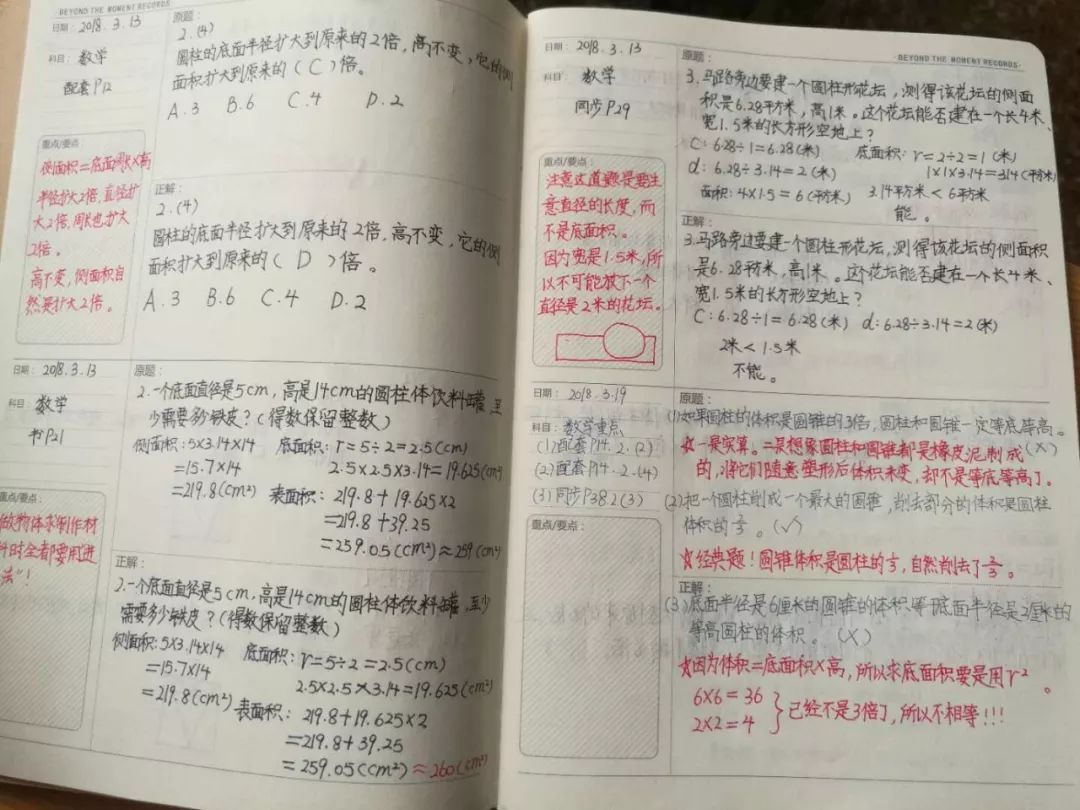 BEYOND THE MOMENT RECORDS
日期：2018.3.13
科目：数学
配套P12
原题：
2.(4)
圆柱的底面半径扩大到原来的2倍，高不变，它的侧
面积扩大到原来的（C）倍。
A.3 B.6 C.4 D.2
重点/要点
侧面积=底面周长×高
半径扩大2倍，直径扩
大2倍，周长也扩大
2倍。
高不变，侧面积自
然是扩大2倍。
正解：
2.(4)
圆柱的底面半径扩大到原来的2倍，高不变，它的侧
面积扩大到原来的（D）倍。
A.3 B.6 C.4 D.2
日期：2018.3.13
科目：数学
书P21
原题：
2.一个底面直径是5cm，高是14cm的圆柱体饮料罐，至
少需要多少铁皮？（得数保留整数）
侧面积：5×3.14×14 底面积：r=5÷2=2.5(cm)
=15.7×14 2.5×2.5×3.14=19.625(cm²)
=219.8(cm²) 表面积：219.8+19.625×2
=219.8+39.25
=259.05(cm²)≈259(cm²)
重点/要点：
做物体求制作材
料时全都要用进
法"！
正解：
2.一个底面直径是5cm，高是14cm的圆柱体饮料罐，至少
需要多少铁皮？（得数保留整数）
侧面积：5×3.14×14 底面积：r=5÷2=2.5(cm)
=15.7×14 2.5×2.5×3.14=19.625(cm²)
=219.8(cm²) 表面积：219.8+19.625×2
=219.8+39.25
=259.05(cm²)≈260(cm²)
BEYOND THE MOMENT RECORDS
日期：2018.3.13
科目：数学
同步P29
原题：
3.马路旁边要建一个圆柱形花坛，测得该花坛的侧面
积是6.28平方米，高1米。这个花坛能否建在一个长4米、
宽1.5米的长方形空地上？
C：6.28÷1=6.28(米) 底面积：r=2÷2=1(米)
d：6.28÷3.14=2(米) 1×1×3.14=3.14(平方米)
面积：4×1.5=6(平方米) 3.14平方米<6平方米
能。
重点/要点：
注意这道题是要注
意直径的长度，而
不是底面积。
因为宽是1.5米，所
以不可能放下一个
直径是2米的花坛。
正解：
3.马路旁边要建一个圆柱形花坛，测得该花坛的侧面积
是6.28平方米，高1米。这个花坛能否建在一个长4米、
宽1.5米的长方形空地上？
C：6.28÷1=6.28(米) d：6.28÷3.14=2(米)
2米<1.5米
不能。
日期：2018.3.19
科目：数学重点
(1)配套P14.2.(2)
(2)配套P14.2.(4)
(3)同步P38.2(3)
重点/要点：
原题：
(1)如果圆柱的体积是圆锥的3倍，圆柱和圆锥一定等底等高。
(×)
☆一是实算。二是想象圆柱和圆锥都是橡皮泥制成
的，将它们随意塑形后体积未变，却不是等底等高了。
(2)把一个圆柱削成一个最大的圆锥，削去部分的体积是圆柱
体积的2/3。(√)
☆经典题！圆锥体积是圆柱的1/3，自然削去了2/3。
正解：
(3)底面半径是6厘米的圆锥的体积等于底面半径是2厘米的
等高圆柱的体积。(×)
☆因为体积=底面积×高，所以求底面积要是用r²。
6×6=36
2×2=4 }已经不是3倍了，所以不相等!!!